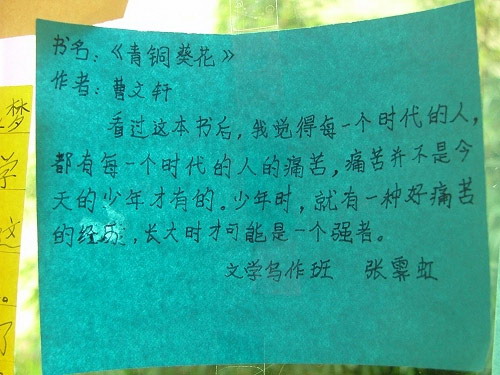 梦
学
这
。
了
书名：《青铜葵花》
作者：曹文轩
看过这本书后，我觉得每一个时代的人，
都有每一个时代的人的痛苦，痛苦并不是今
天的少年才有的。少年时，就有一种好痛苦
的经历，长大时才可能是一个强者。
文学写作班 张霁虹